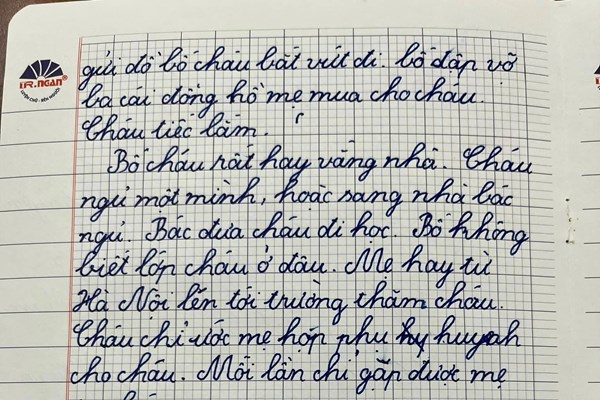 TR.NGAN®
LUYỆN CHỮ - RÈN NGƯỜI
gửi đồ bố cháu bắt vứt đi. bố đập vỡ
ba cái đồng hồ mẹ mua cho cháu.
Cháu tiếc lắm.
Bố cháu rất hay vắng nhà. Cháu
ngủ một mình, hoặc sang nhà bác
ngủ. Bác đưa cháu đi học. Bố không
biết lớp cháu ở đâu. Mẹ hay từ
Hà Nội lên tới trường thăm cháu.
Cháu chỉ ước mẹ họp phụ huynh
cho cháu. Mỗi lần chỉ gặp được mẹ